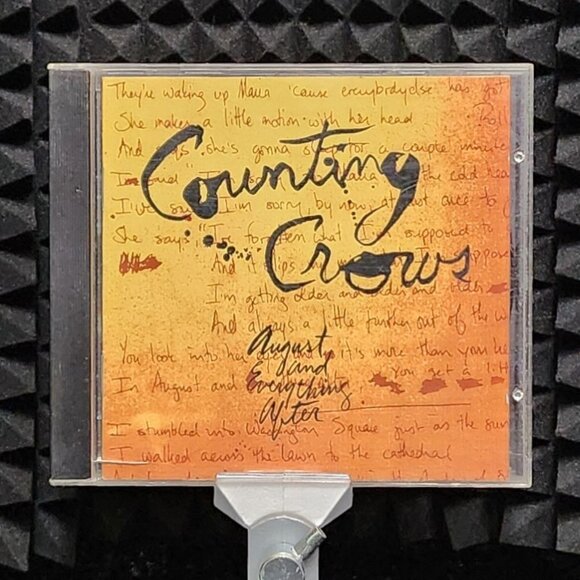 They're waking up Maria 'cause everybody else has got
She makes a little motion with her head
And says she's gonna sleep for a couple minute
Counting
I said I'm the cold hea
I've I'm sorry by now, at not once to
She says I'm supposed to
Crows
And it slips
I'm getting older and older and older
And always a little further out of the w
You look into her it's more than you
August
and
Everything
After
In August and you get a
I stumbled into Washington Square just as the sun
I walked across the lawn to the cathedral